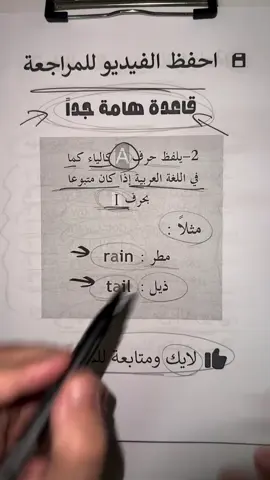 احفظ الفيديو للمراجعة
قاعدة هامة جداً
2-يلفظ حرف A كالياء كما
في اللغة العربية إذا كان متبوعا
بحرف I
مثلاً :
مطر : rain
ذيل : tail
لايك ومتابعة